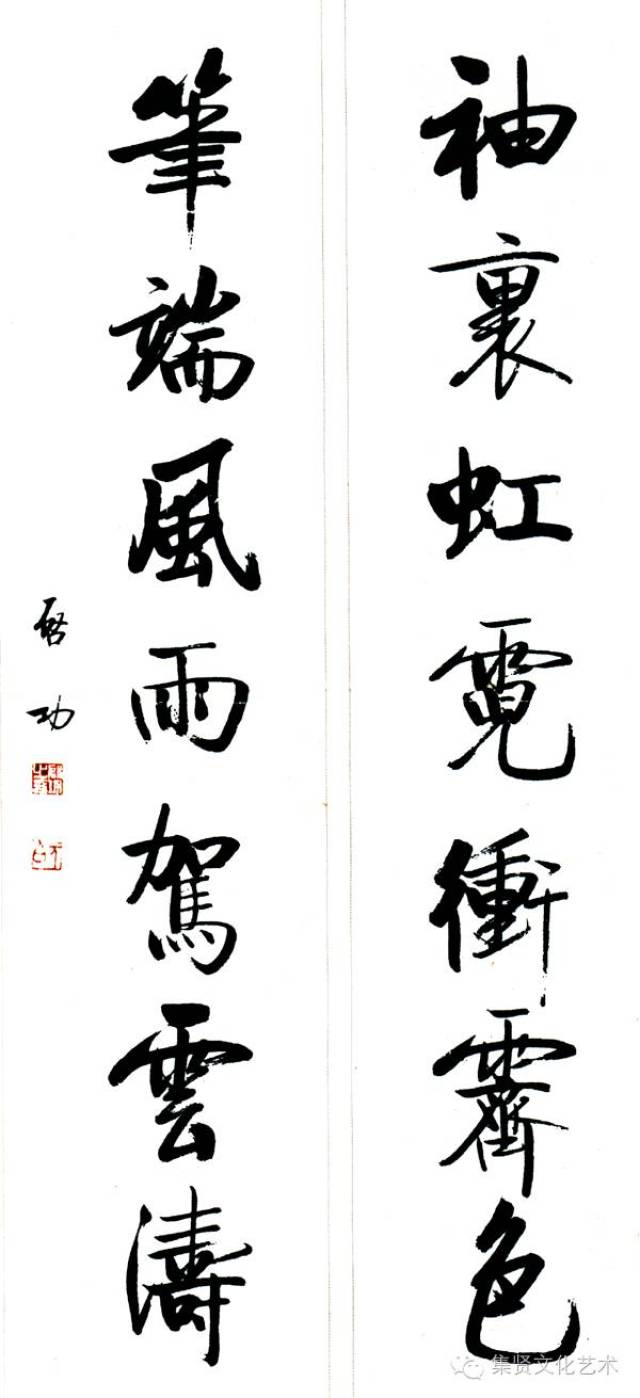 袖裏虹霓衝霽色
筆端風雨駕雲濤
啓功
集贤文化艺术